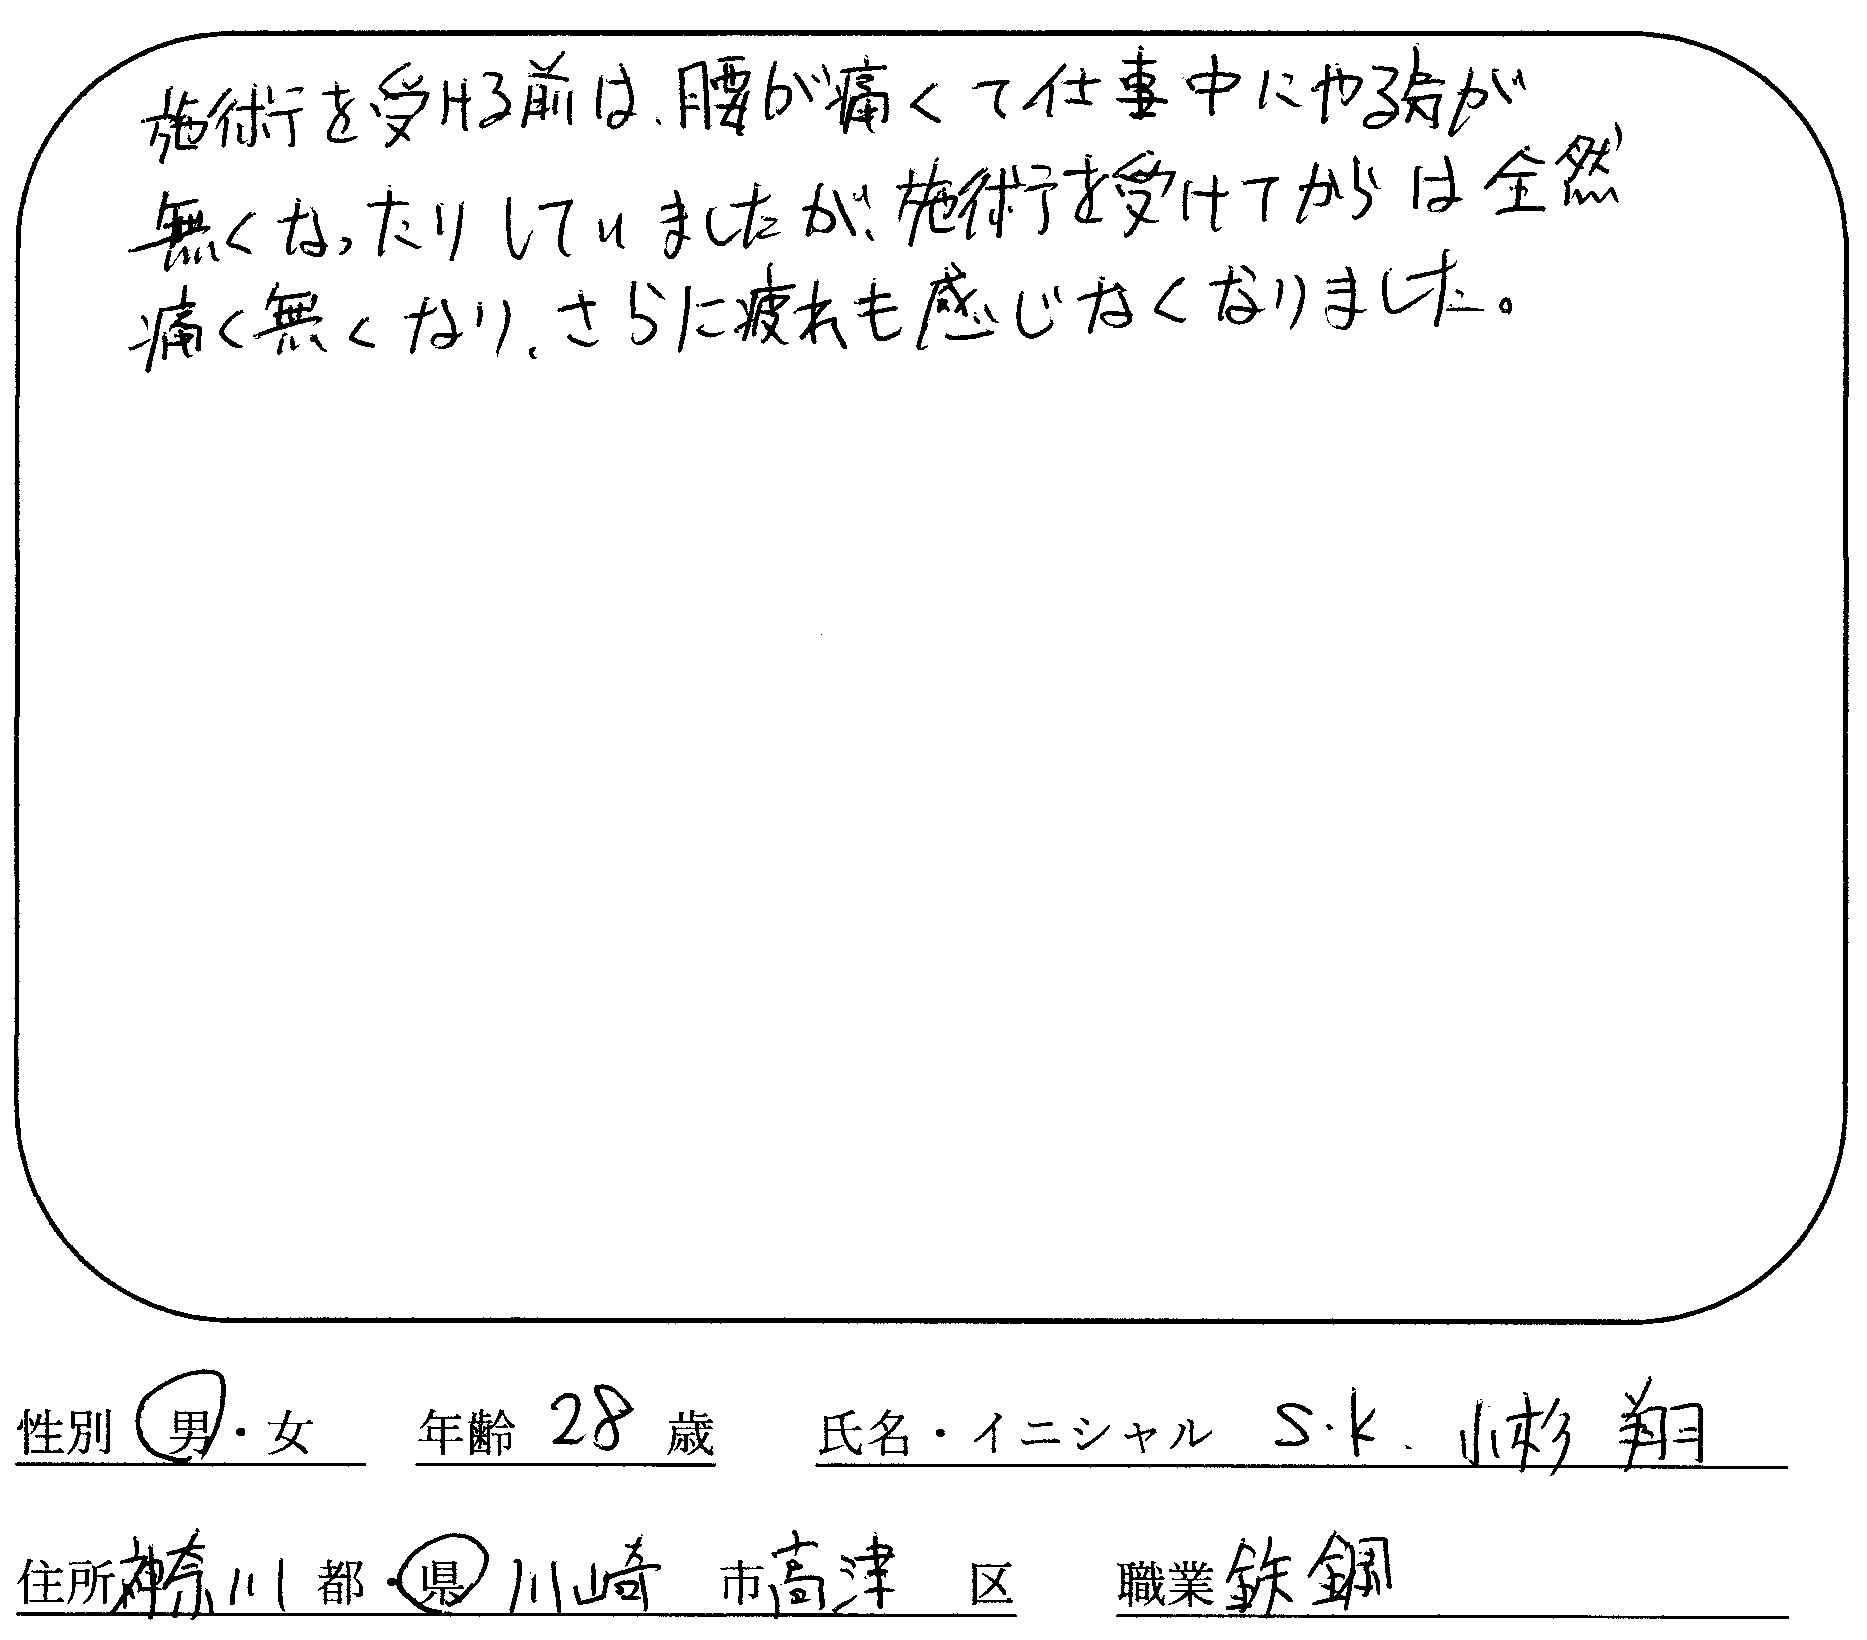 施術を受ける前は、腰が痛くて仕事中にやる気が
無くなったりしていましたが、施術を受けてからは全然
痛く無くなり、さらに疲れも感じなくなりました。
性別 男・女 年齢 28 歳 氏名・イニシャル S.K. 小杉 翔
住所 神奈川 都・県 川崎 市 高津 区 職業 鉄鋼